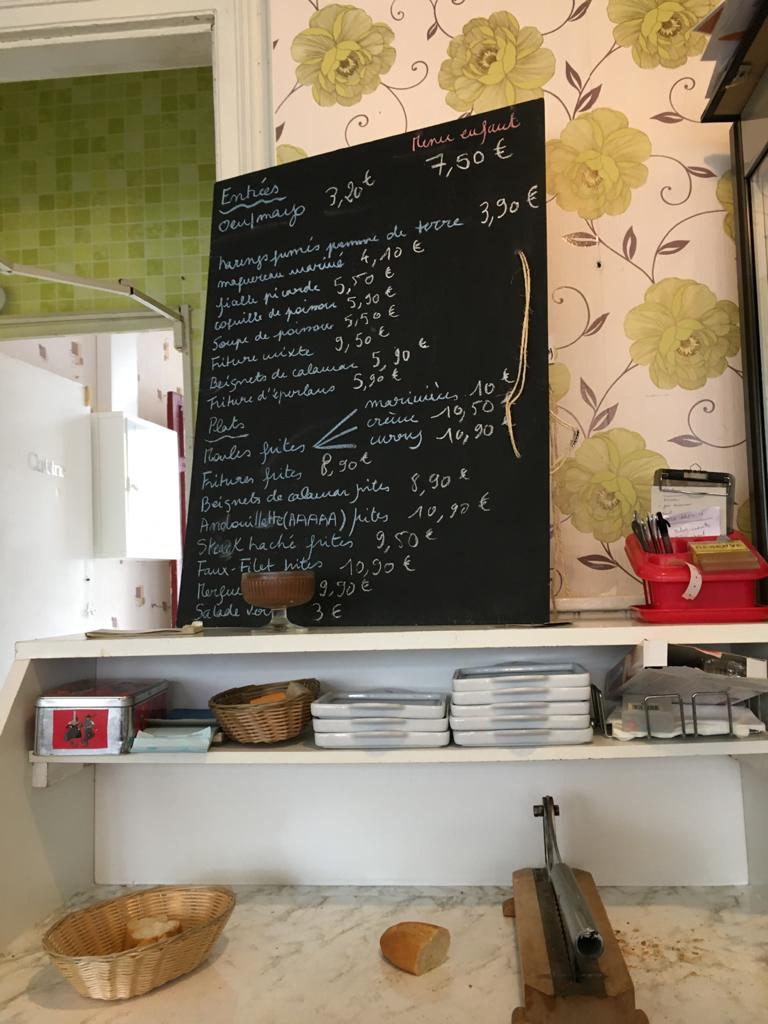 Menu enfant
7,50 €
Entrées
Oeuf mayo 3,20 €
harengs fumés pomme de terre 3,90 €
maquereau mariné 4,10 €
ficelle picarde 5,50 €
coquille de poisson 5,90 €
Soupe de poisson 5,50 €
Friture mixte 9,50 €
Beignets de calamar 5,90 €
Friture d'éperlans 5,90 €
Plats
Moules frites
marinières 10 €
crème 10,50 €
curry 10,90 €
Fritures frites 8,90 €
Beignets de calamar frites 8,90 €
Andouillette (AAAAA) frites 10,90 €
Steak haché frites 9,50 €
Faux-Filet frites 10,90 €
9,90 €
Salade 3 €